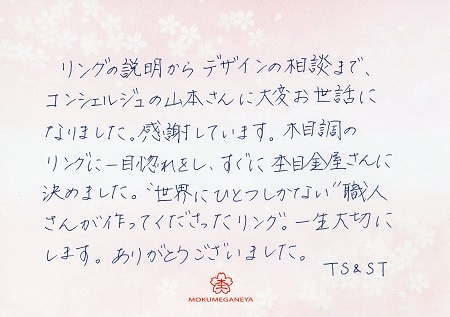 リングの説明から デザインの相談まで、
コンシェルジュの山本さんに大変お世話に
なりました。感謝しています。木目調の
リングに一目惚れをし、すぐに 杢目金屋さんに
決めました。“世界にひとつしかない” 職人
さんが作ってくださったリング。一生大切に
します。ありがとうございました。
TS & ST
杢
MOKUMEGANEYA